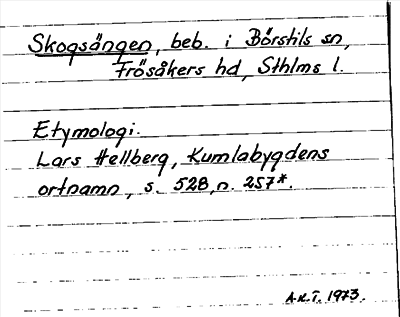 Skogsängen, beb. i Börstils sn,
Frösåkers hd, Sthlms l.
Etymologi.
Lars Hellberg, Kumlabygdens
ortnamn, s. 528, n. 257*.
A.K.T. 1973.